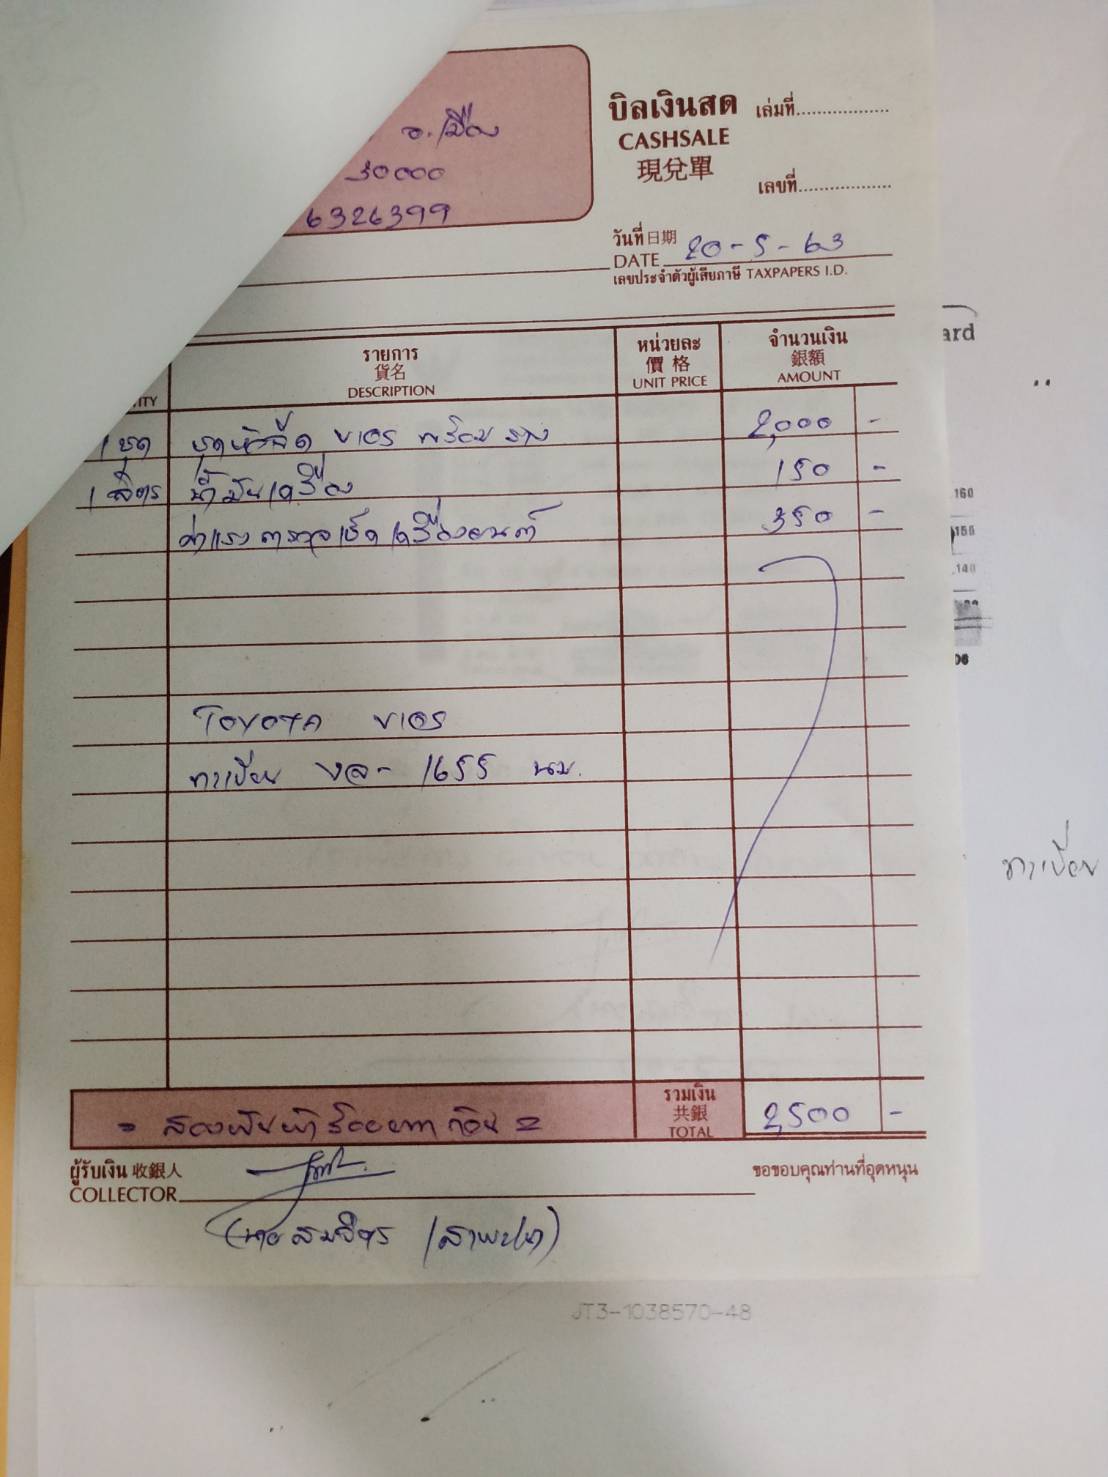 อ.เมือง
30000
6326399
บิลเงินสด เล่มที่
CASHSALE
現兌單
เลขที่
วันที่ 日期
DATE 20-5-63
เลขประจำตัวผู้เสียภาษี TAXPAPERS I.D.
ITY
รายการ
貨名
DESCRIPTION
หน่วยละ
價格
UNIT PRICE
จำนวนเงิน
銀額
AMOUNT
1 ชุด ชุดหัวฉีด VIOS พร้อมราง 2,000 -
1 ลิตร น้ำมันเครื่อง 150 -
ค่าแรงตรวจเช็ดเครื่องยนต์ 350 -
TOYOTA VIOS
ทะเบียน 1655 นม.
= สองพันห้าร้อยบาทถ้วน =
รวมเงิน
共銀
TOTAL
2,500 -
ผู้รับเงิน 收銀人
COLLECTOR
ขอขอบคุณท่านที่อุดหนุน
(นายสมจิตร
JT3-1038570-48
ard
160
155
140
06
ทะเบียน